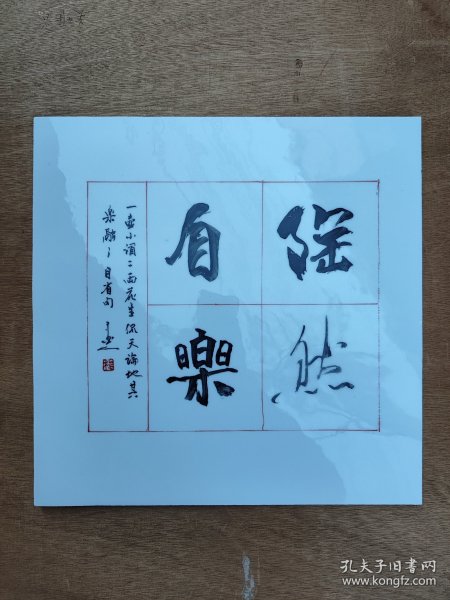 陶然
自樂
一壶小酒二两花生侃天論地其
樂融々自省句
孔夫子旧书网
www.kongfz.com